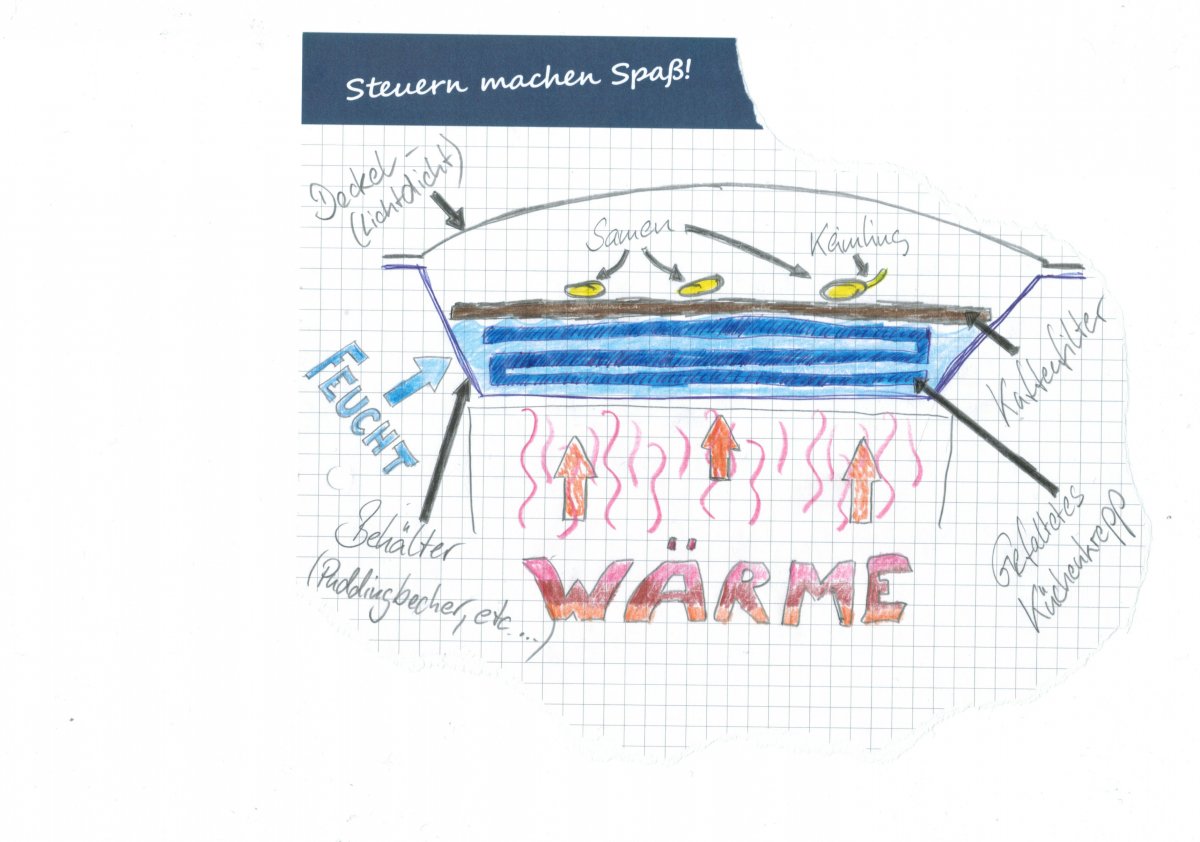 Steuern machen Spaß!
Deckel -
(Lichtdicht)
Samen
Keimling
FEUCHT
Kaffeefilter
Behälter
(Puddingbecher, etc....)
Gefaltetes
Küchenkrepp
WÄRME